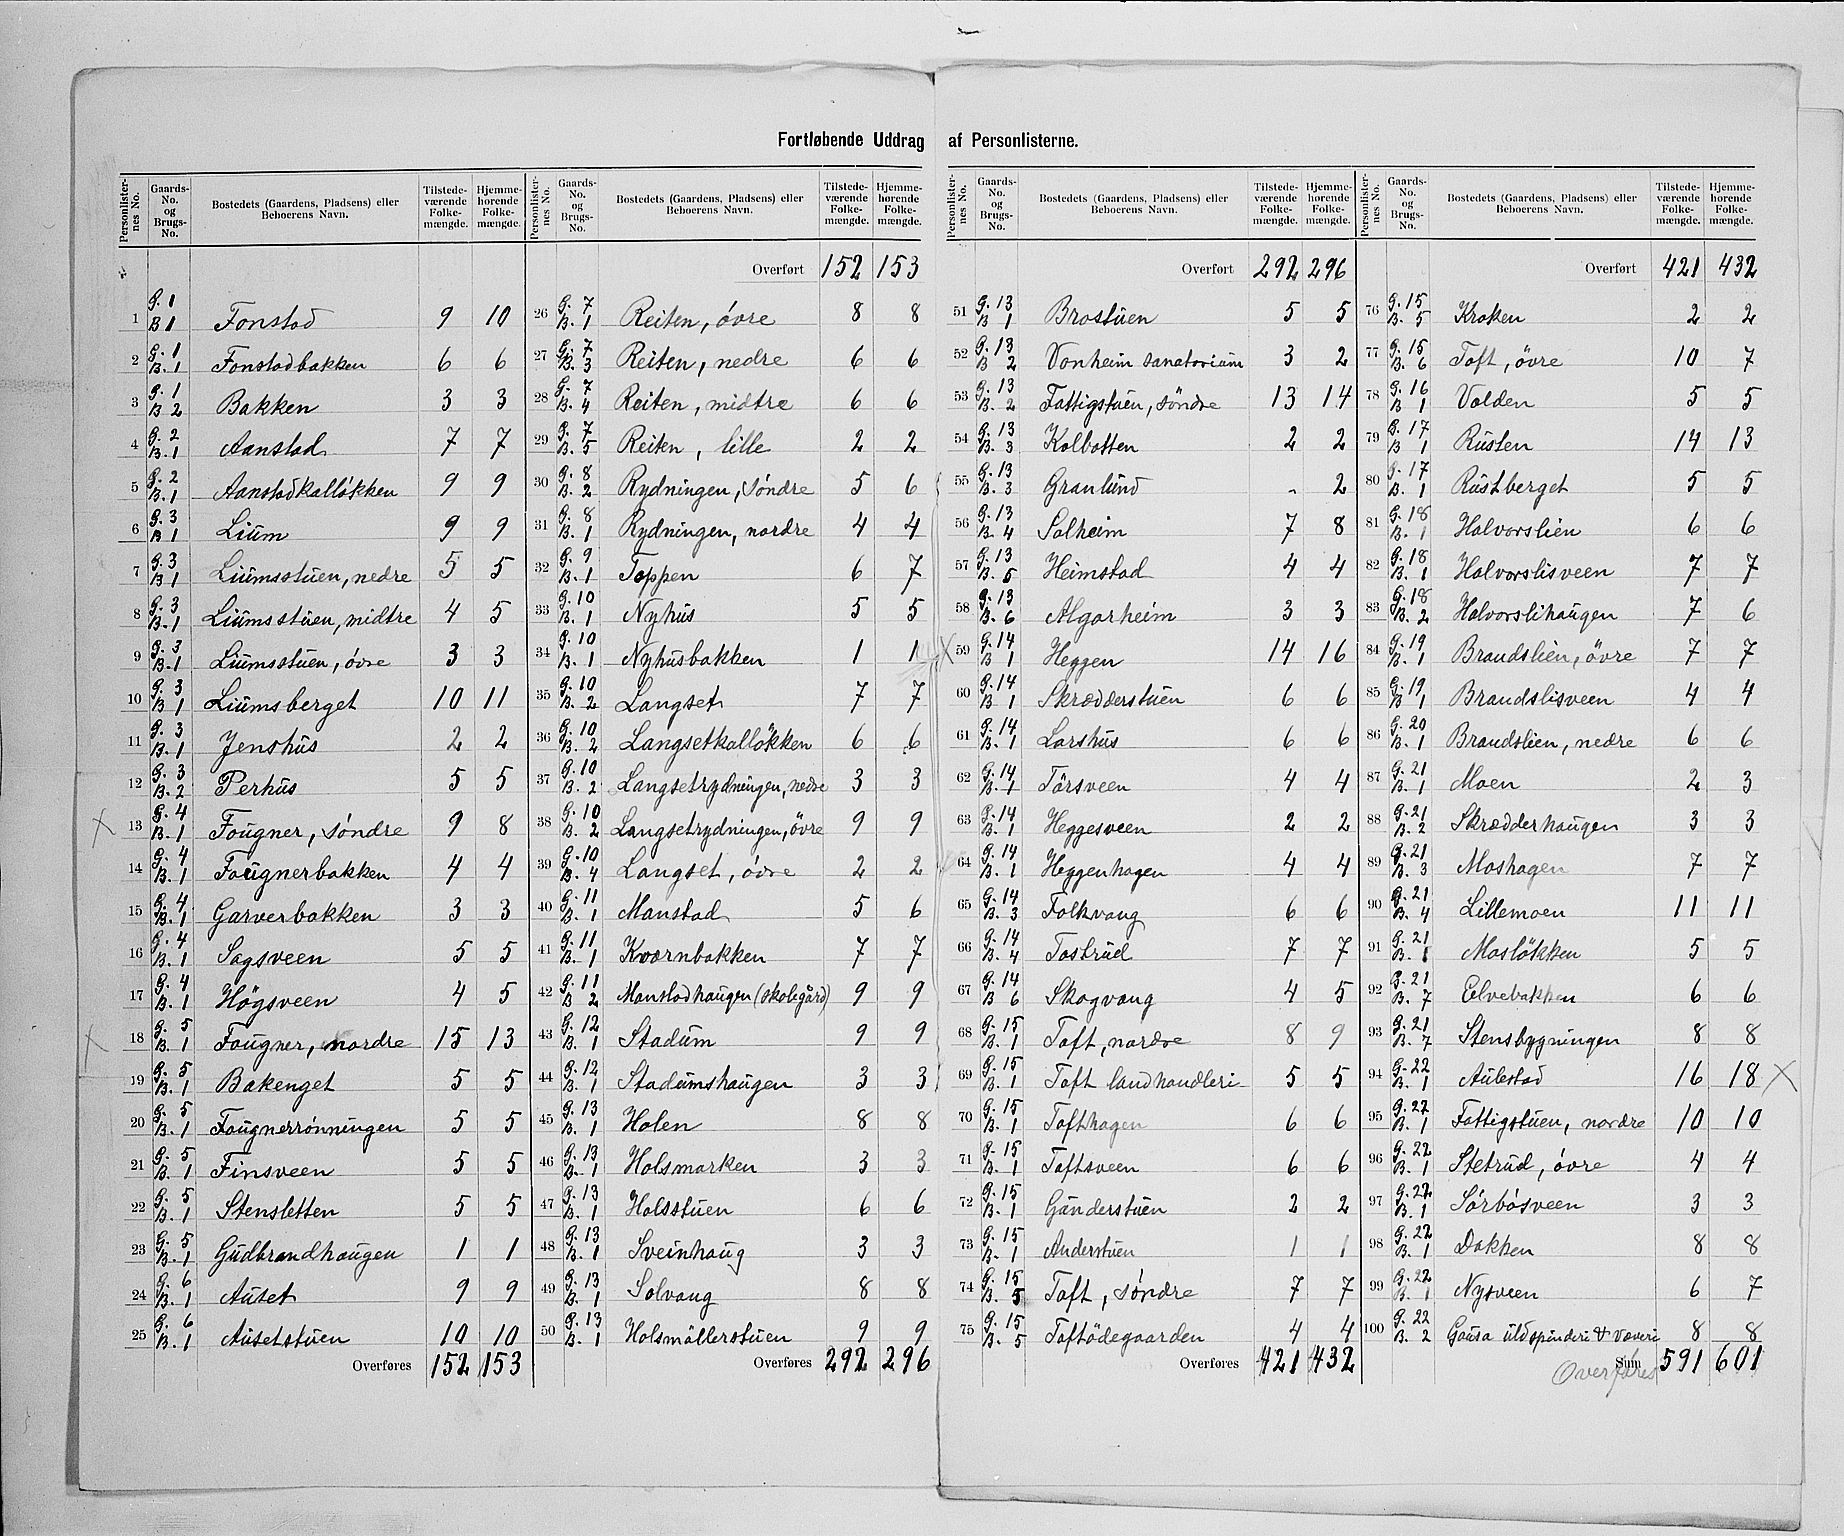 Fortløbende Uddrag af Personlisterne.
Personlisternes No. | Gaards-No. og Brugs-No. | Bostedets (Gaardens, Pladsens) eller Beboerens Navn. | Tilstedeværende Folkemængde. | Hjemmehørende Folkemængde.
1 G. 1 B 1 Fonstad 9 10
2 G. 1 B. 1 Fonstadbakken 6 6
3 G. 1 B 2 Bakken 3 3
4 G. 2 B. 1 Aanstad 7 7
5 G. 2 B. 1 Aanstadkalløkken 9 9
6 G. 3 B 1 Lium 9 9
7 G. 3 B 1 Liumsstuen, nedre 5 5
8 G. 3 B. 1 Liumsstuen, midtre 4 5
9 G. 3 B. 1 Liumsstuen, øvre 3 3
10 G. 3 B 1 Liumsberget 10 11
11 G. 3 B. 1 Jenshus 2 2
12 G. 3 B. 2 Perhus 5 5
13 G. 4 B. 1 Fougner, søndre 9 8
14 G. 4 B. 1 Fougnerbakken 4 4
15 G. 4 B. 1 Garverbakken 3 3
16 G. 4 B. 1 Sagsveen 5 5
17 G. 4 B. 1 Høgsveen 4 5
18 G. 5 B. 1 Fougner, nordre 15 13
19 G. 5 B. 1 Bakenget 5 5
20 G. 5 B. 1 Fougnerrønningen 5 5
21 G. 5 B. 1 Finsveen 5 5
22 G. 5 B. 1 Stensletten 5 5
23 G. 5 B. 1 Gudbrandhaugen 1 1
24 G. 6 B. 1 Auset 9 9
25 G. 6 B. 1 Ausetstuen 10 10
Overføres 152 153
Personlisternes No. | Gaards-No. og Brugs-No. | Bostedets (Gaardens, Pladsens) eller Beboerens Navn. | Tilstedeværende Folkemængde. | Hjemmehørende Folkemængde.
Overført 152 153
26 G. 7 B. 1 Reiten, øvre 8 8
27 G. 7 B. 3 Reiten, nedre 6 6
28 G. 7 B. 4 Reiten, midtre 6 6
29 G. 7 B. 5 Reiten, lille 2 2
30 G. 8 B. 2 Rydningen, søndre 5 6
31 G. 8 B. 1 Rydningen, nordre 4 4
32 G. 9 B. 1 Toppen 6 7
33 G. 10 B. 1 Nyhus 5 5
34 G. 10 B. 1 Nyhusbakken 1 1
35 G. 10 B. 2 Langset 7 7
36 G. 10 B. 2 Langsetkalløkken 6 6
37 G. 10 B. 2 Langsetrydningen, nedre 3 3
38 G. 10 B. 2 Langsetrydningen, øvre 9 9
39 G. 10 B. 4 Langset, øvre 2 2
40 G. 11 B. 1 Manstad 5 6
41 G. 11 B. 1 Kværnbakken 7 7
42 G. 11 B 2 Manstadhaugen (skolegård) 9 9
43 G. 12 B. 1 Stadum 9 9
44 G. 12 B. 1 Stadumshaugen 3 3
45 G. 13 B. 1 Holen 8 8
46 G. 13 B. 1 Holsmarken 3 3
47 G. 13 B. 1 Holsstuen 6 6
48 G. 13 B. 1 Sveinhaug 3 3
49 G. 13 B. 1 Solvang 8 8
50 G. 13 B. 1 Holsmøllerstuen 9 9
Overføres 292 296
Personlisternes No. | Gaards-No. og Brugs-No. | Bostedets (Gaardens, Pladsens) eller Beboerens Navn. | Tilstedeværende Folkemængde. | Hjemmehørende Folkemængde.
Overført 292 296
51 G. 13 B 1 Brostuen 5 5
52 G. 13 B 2 Vonheim sanatorium 3 2
53 G. 13 B. 2 Fattigstuen, søndre 13 14
54 G. 13 B. 3 Kolbotten 2 2
55 G. 13 B. 3 Granlund - 2
56 G. 13 B. 4 Solheim 7 8
57 G. 13 B. 5 Heimstad 4 4
58 G. 13 B. 6 Algarheim 3 3
59 G. 14 B 1 Heggen 14 16
60 G. 14 B 1 Skrædderstuen 6 6
61 G. 14 B. 1 Larshus 6 6
62 G. 14 B. 1 Tørsveen 4 4
63 G. 14 B. 1 Heggesveen 2 2
64 G. 14 B. 1 Heggenhagen 4 4
65 G. 14 B. 3 Folkvang 6 6
66 G. 14 B. 4 Tostrud 7 7
67 G. 14 B 6 Skogvang 4 5
68 G. 15 B. 1 Toft, nordre 8 9
69 G. 15 B. 1 Toft landhandleri 5 5
70 G. 15 B. 1 Tofthagen 6 6
71 G. 15 B. 1 Toftsveen 6 6
72 G. 15 B. 1 Gunderstuen 2 2
73 G. 15 B. 1 Anderstuen 1 1
74 G. 15 B. 5 Toft, søndre 7 7
75 G. 15 B. 5 Toftødegaarden 4 4
Overføres 421 432
Personlisternes No. | Gaards-No. og Brugs-No. | Bostedets (Gaardens, Pladsens) eller Beboerens Navn. | Tilstedeværende Folkemængde. | Hjemmehørende Folkemængde.
Overført 421 432
76 G. 15 B. 5 Kroken 2 2
77 G. 15 B. 6 Toft, øvre 10 7
78 G. 16 B 1 Volden 5 5
79 G. 17 B 1 Rusten 14 13
80 G. 17 B. 1 Rustberget 5 5
81 G. 18 B. 1 Halvorslien 6 6
82 G. 18 B. 1 Halvorslisveen 7 7
83 G. 18 B. 2 Halvorslihaugen 7 6
84 G. 19 B. 1 Brandslien, øvre 7 7
85 G. 19 B 1 Brandslisveen 4 4
86 G. 20 B. 1 Brandslien, nedre 6 6
87 G. 21 B. 1 Moen 2 3
88 G. 21 B. 2 Skrædderhaugen 3 3
89 G. 21 B. 3 Moshagen 7 7
90 G. 21 B. 4 Lillemoen 11 11
91 G. 21 B. Mosløkken 5 5
92 G. 21 B. 7 Elvebakken 6 6
93 G. 21 B. 7 Stensbygningen 8 8
94 G. 22 B. 1 Aulestad 16 18
95 G. 22 B. 1 Fattigstuen, nordre 10 10
96 G. 22 B. 1 Stetrud, øvre 4 4
97 G. 22 B. 1 Sørbøsveen 3 3
98 G. 22 B. 1 Dokken 8 8
99 G. 22 B. 1 Nysveen 6 7
100 G. 22 B. 2 Gausa uldspinderi & væveri 8 8
Sum 591 601
Overføres